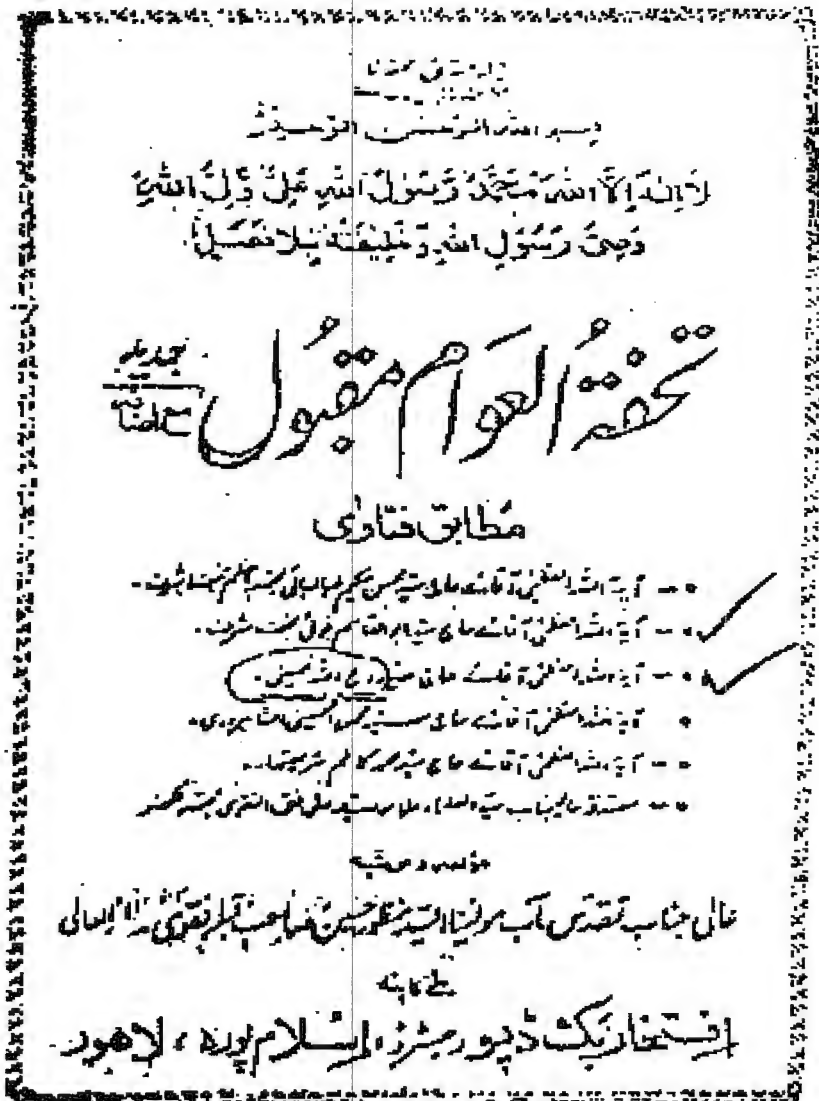 بسم الله الرحمن الرحيم
لا إله إلا الله محمد رسول الله علي ولي الله
وصي رسول الله وخليفته بلا فصل
تحفة العوام مقبول جدید
مع اضافہ
مطابق فتاوی
آیۃ اللہ العظمیٰ آقائے حاجی سید محسن حکیم طباطبائی مجتہد اعظم نجف اشرف۔
آیۃ اللہ العظمیٰ آقائے حاجی سید ابوالقاسم خوئی نجف اشرف۔
آیۃ اللہ العظمیٰ آقائے حاجی سید روح اللہ خمینی۔
آیۃ اللہ العظمیٰ آقائے حاجی سید محمود الحسینی الشاہرودی۔
آیۃ اللہ العظمیٰ آقائے حاجی سید محمد کاظم شریعتمدار۔
مصدقہ عالیجناب سید العلماء علامہ سید علی نقی النقوی مجتہد لکھنو
مؤلفہ و مرتبہ
عالی جناب تقدس مآب مولینا السید منظور حسین صاحب نقوی مدظلہ العالی
ملنے کا پتہ
افتخار بک ڈپو رجسٹرڈ، اسلام پورہ، لاھور